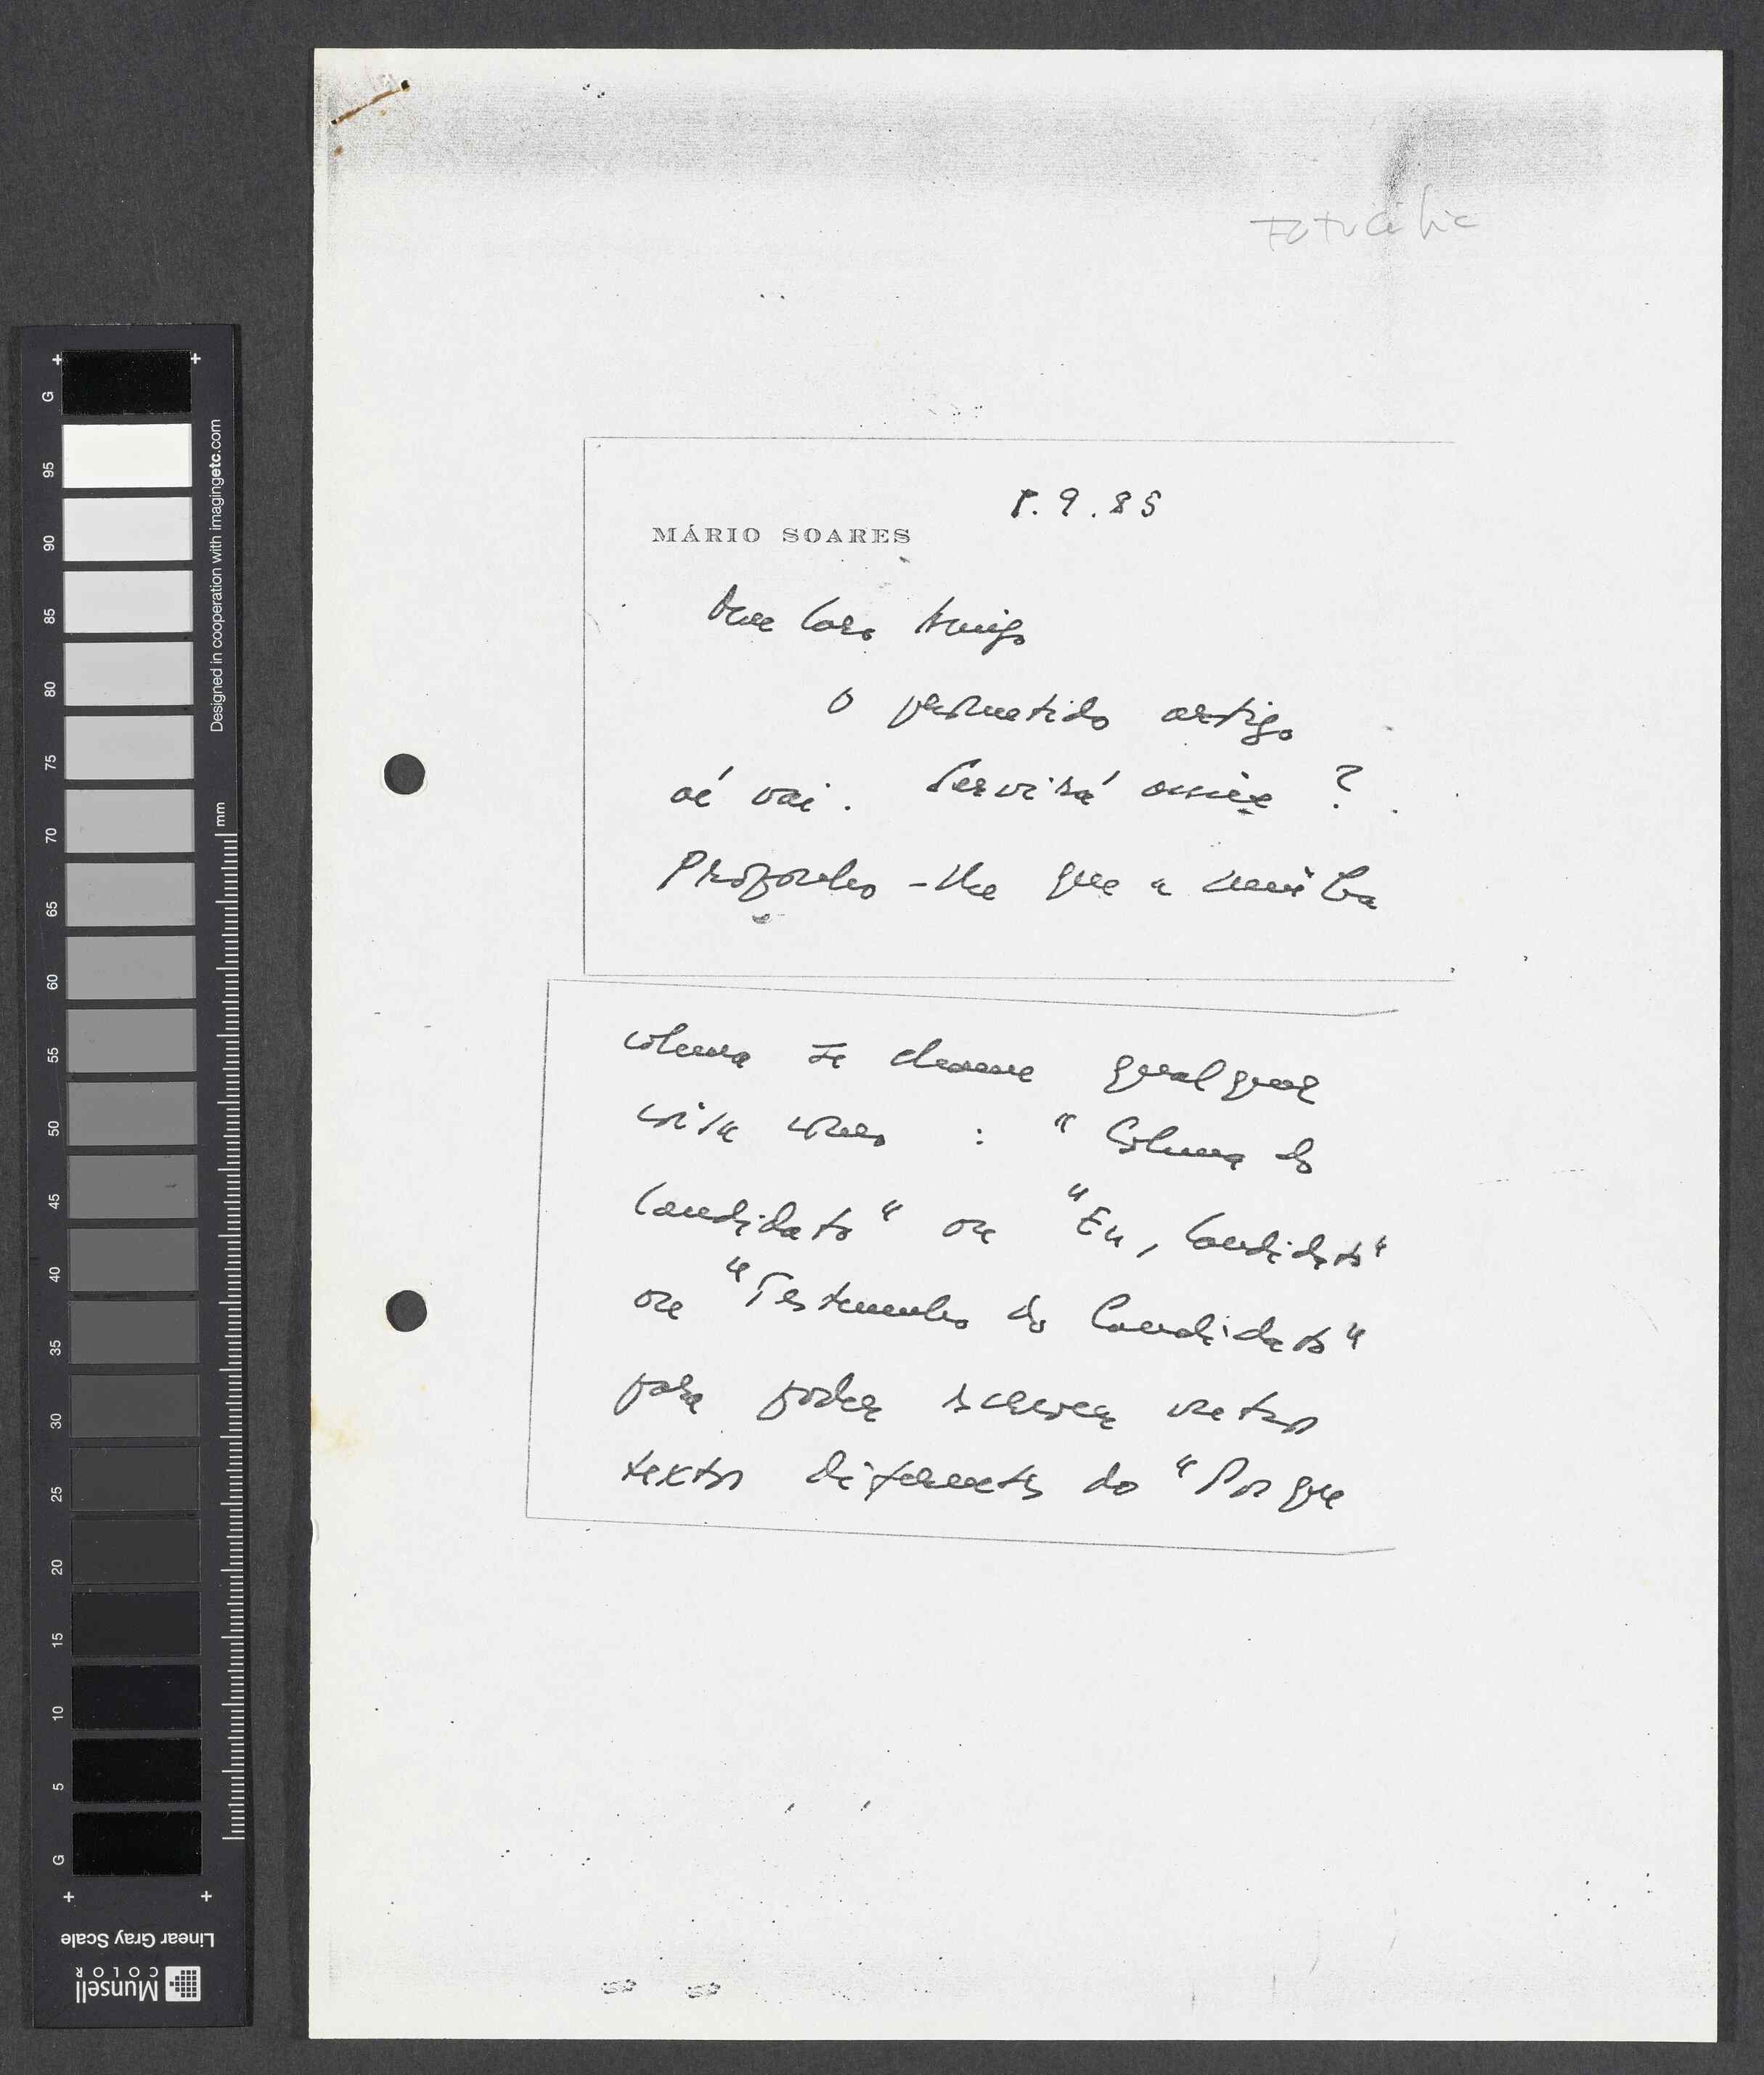 Fotocópia
8.9.85
MÁRIO SOARES
Meu Caro Amigo
O prometido artigo
aí vai. Servirá assim?
Proponho-lhe que a minha
coluna se chame qualquer
coisa como: "Coluna do
Candidato" ou "Eu, Candidato"
ou "Testemunho do Candidato"
para poder escrever outros
textos diferentes do "Por que
G
95
90
85
80
75
70
65
60
55
50
45
40
35
30
25
20
15
10
5
G
Designed in cooperation with imagingetc.com
mm
Linear Gray Scale
Munsell
COLOR